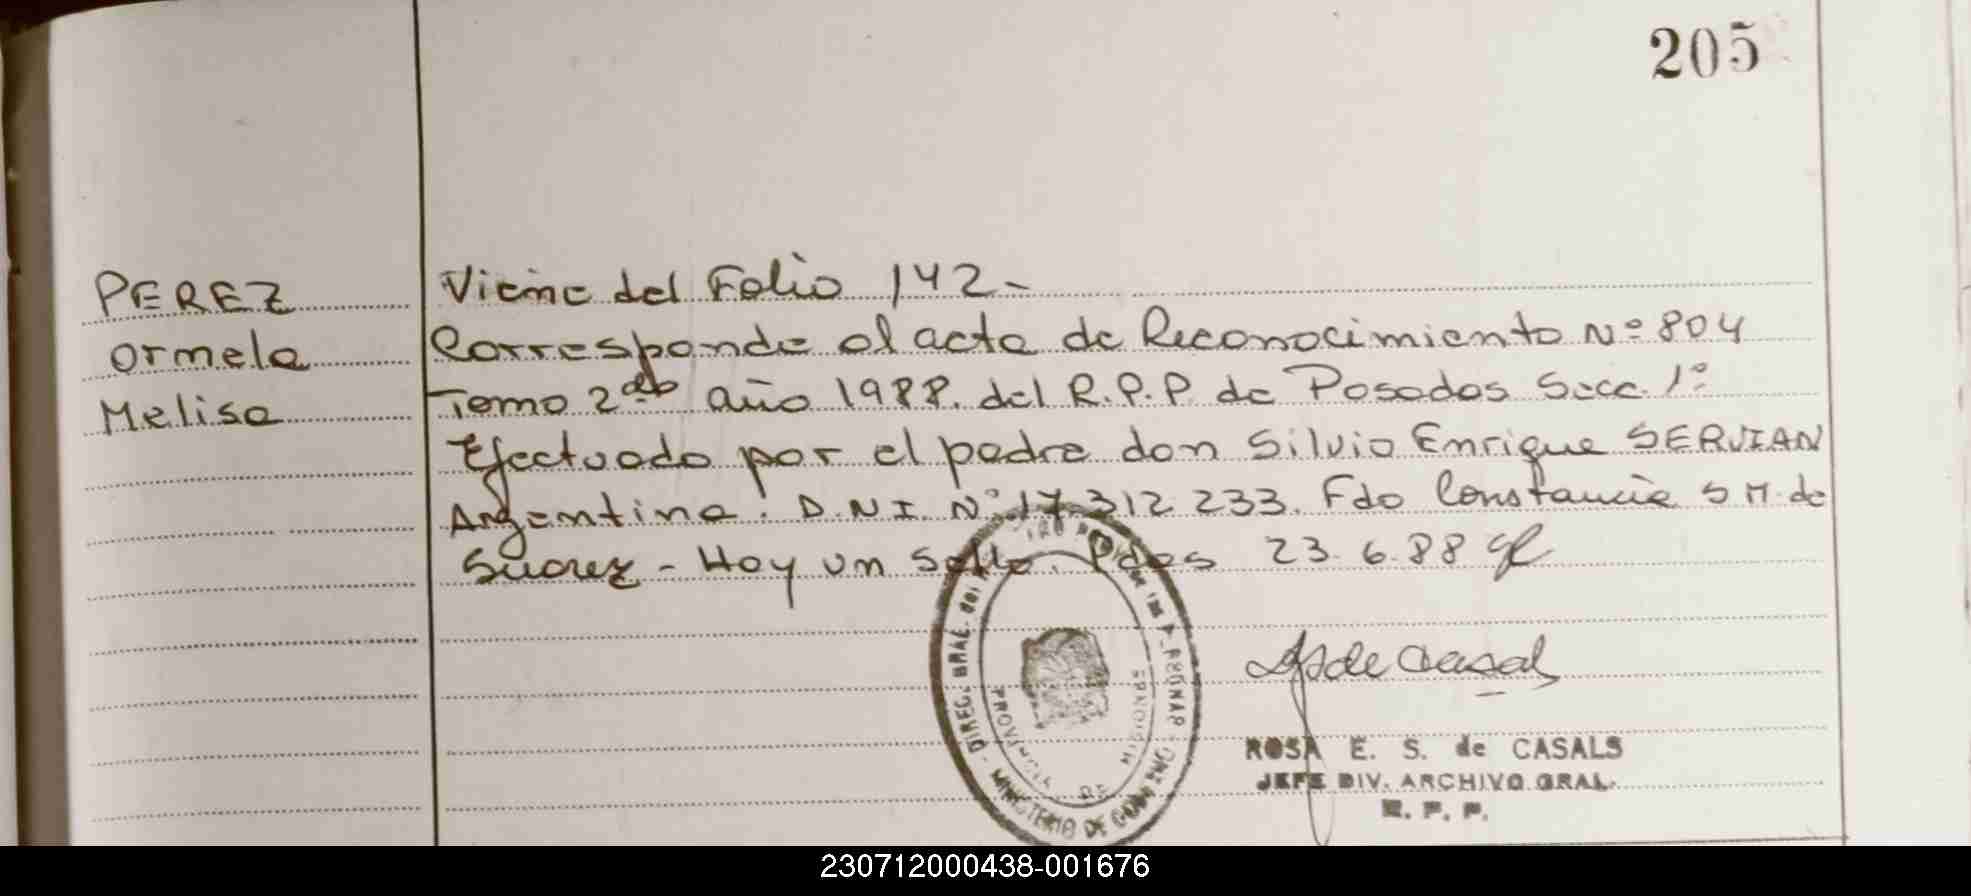 205
PEREZ
Ormela
Melisa
Viene del Folio 142-
Corresponde al acta de Reconocimiento Nº 804
Tomo 2do año 1988. del R.P.P. de Posadas Secc. 1º
Efectuado por el padre don Silvio Enrique SERVIAN
Argentino. D.N.I. Nº 17.312.233. Fdo Constancia S M. de
Suarez - Hay un sello. Pdas 23.6.88
ROSA E. S. de CASALS
JEFE DIV. ARCHIVO GRAL.
R. P. P.
DIREC. GRAL. del
MINISTERIO DE GOBIERNO
PROVINCIA DE MISIONES
230712000438-001676